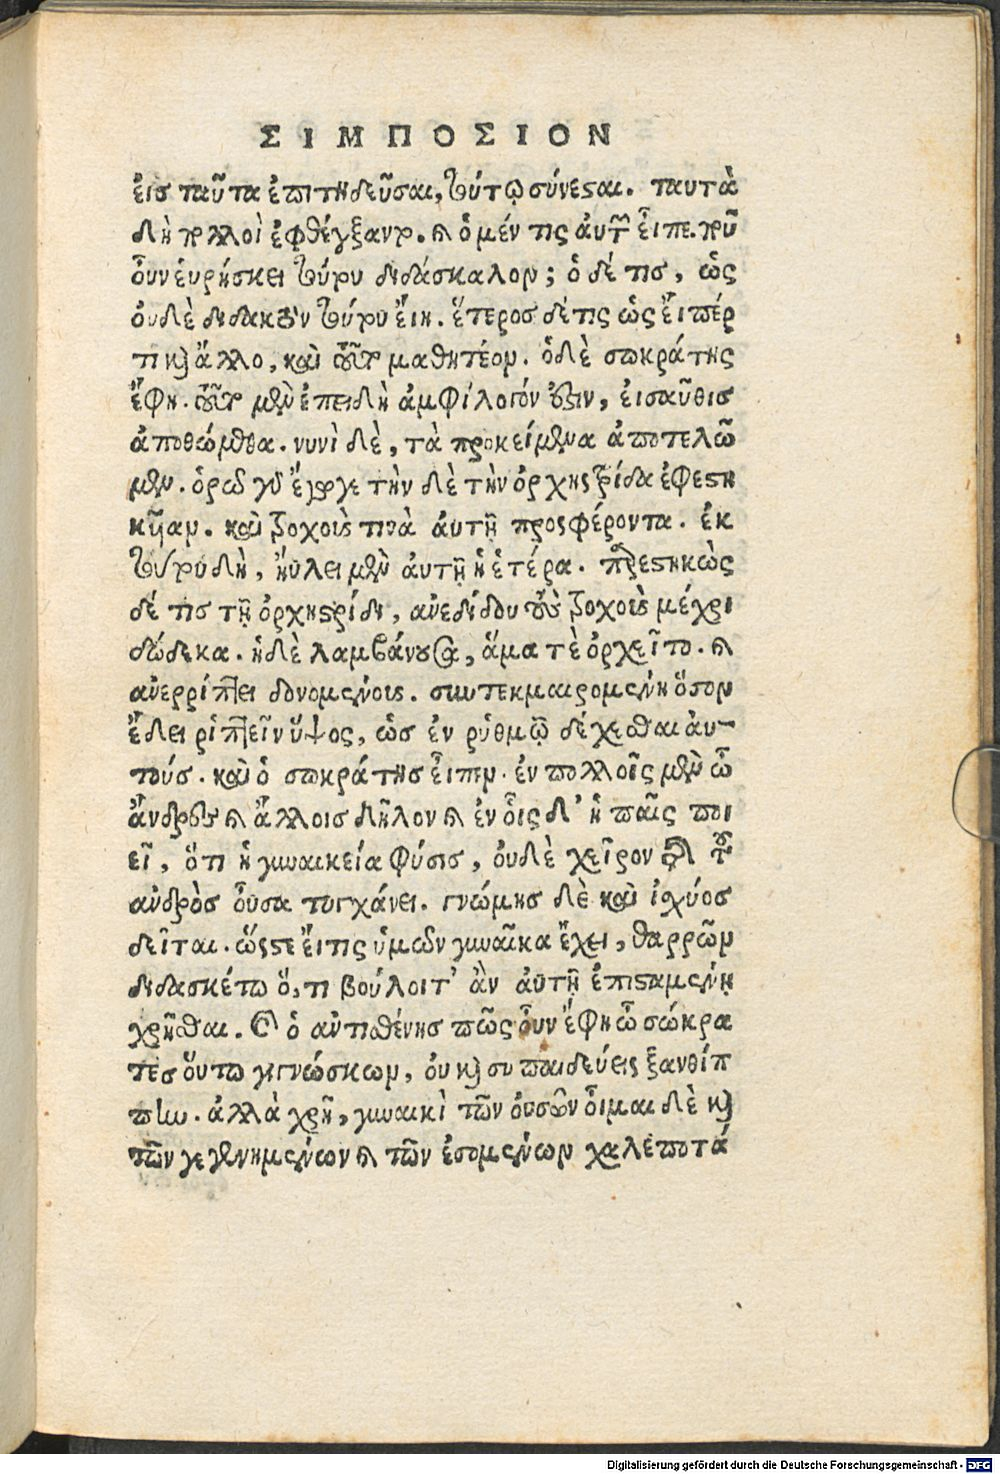 ΣΙΜΠΟΣΙΟΝ
ἐις ταῦτα ἐπιτηδεῦσαι, τούτῳ σύνεσαι. ταυτὰ
δὴ πολλοὶ ἐφθέγξαντο. καὶ ὁ μέν τις ἀυτῶν εἶπε. ποῦ
οὖν ἑυρήσκει τούτου διδάσκαλον; ὁ δέ τις, ὡς
ουδὲ διδακτὸν τούτο εἴη. ἕτερος δέ τις ὡς εἴπέρ
τι καὶ ἄλλο, καὶ τοῦτο μαθητέον. ὁ δὲ σωκράτης
ἔφη. τοῦτο μὲν ἐπειδὴ ἀμφίλογόν ἐστιν, εἰσαῦθις
ἀποθώμεθα. νυνὶ δὲ, τὰ προκείμενα ἀποτελῶ
μεν. ὁρῶ γὰρ ἔγωγε τὴν δὲ τὴν ὀρχηστρίδα ἐφεστη
κῆαν. καὶ τροχοὺς τινὰ ἀυτῆ προσφέροντα. ἐκ
τούτου δὴ, ἤυλει μὲν ἀυτῆ ἡ ἑτέρα. παρεστηκὼς
δέ τις τῆ ὀρχηστρίδι, ανεδίδου τοὺς τροχοὺς μέχρι
δώδεκα. ἡ δὲ λαμβάνουσα, ἅμα τὲ ὀρχεῖτο. καὶ
ανερρίπτει δονομένους. συντεκμαιρομένη ὅσον
ἔδει ῥιπτεῖν ὕψος, ὡς ἐν ῥυθμῷ δέχεσθαι ἀυ-
τούς. καὶ ὁ σωκράτης εἶπεν. ἐν πολλοῖς μὲν ὦ
ἄνδρες καὶ ἄλλοις δῆλον καὶ ἐν οἷς δ' ἡ παῖς ποι
εῖ, ὅτι ἡ γυναικεία φύσις, ουδὲ χεῖρον τῆς τοῦ
ανδρὸς οὖσα τυγχάνει. γνώμης δὲ καὶ ἰσχύος
δεῖται. ὥστε εἴ τις ὑμῶν γυναῖκα ἔχει, θαρρῶν
διδασκέτω ὅ,τι βούλοιτ' ἂν ἀυτῆ ἐπισταμένῃ
χρῆσθαι. Καὶ ὁ αντισθένης πῶς οὖν ἔφη ὦ σώκρα
τες οὕτω γιγνώσκων, ου καὶ συ παιδεύεις ξανθίπ
πην. ἀλλὰ χρῆ, γυναικὶ τῶν ὀυσῶν οἶμαι δὲ καὶ
τῶν γεγενημένων καὶ τῶν ἐσομένων χαλεποτά
Digitalisierung gefördert durch die Deutsche Forschungsgemeinschaft - DFG